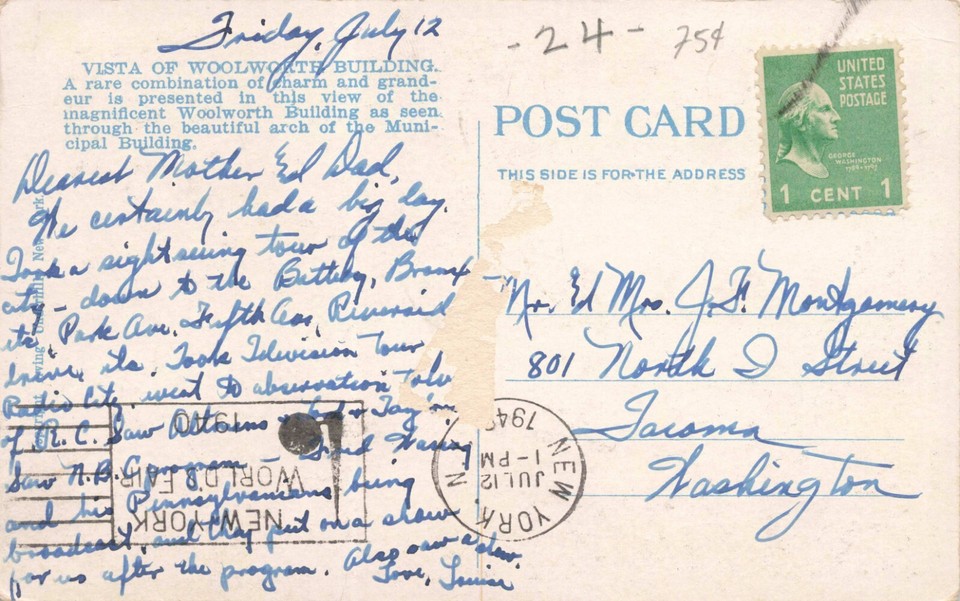 Friday, July 12
- 24 - 75¢
VISTA OF WOOLWORTH BUILDING.
A rare combination of charm and grand-
eur is presented in this view of the
magnificent Woolworth Building as seen
through the beautiful arch of the Muni-
cipal Building.
Dearest Mother Ed Dad,
We certainly had a big day.
Took a sightseeing tour of the
city - down to the Battery, Bronx
etc, Park Ave, Fifth Ave, Riverside
drive, etc. Took Television Tour
Radio City, went to observation
of R.C. Saw
Saw N.B.C. program - Fred Waring
and his Pennsylvanians being
broadcast, and they put on a show
for us after the program. Also saw a
Love, Louise
POST CARD
THIS SIDE IS FOR THE ADDRESS
UNITED
STATES
POSTAGE
GEORGE
WASHINGTON
1789-1797
1 CENT 1
Mr. Ed Mrs. J. F. Montgomery
801 North I Street
Tacoma
Washington
NEW YORK
JUL 12
1-PM
NEW YORK
WORLD'S FAIR
1940